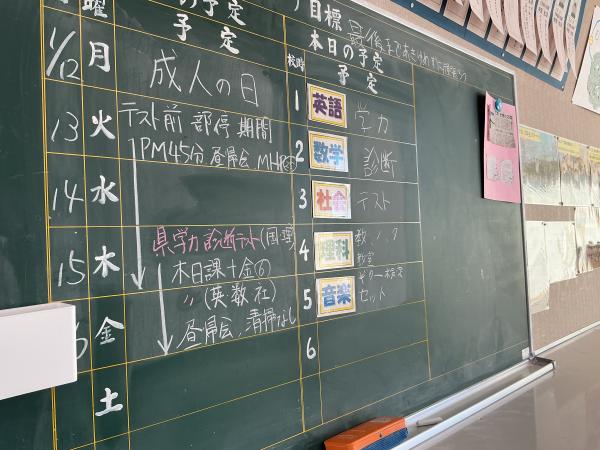 曜 の予定
予定
1/12 月 成人の日
13 火 テスト前 部停 期間
PM45分 昼帰会
14 水
県学力診断テスト(国・理)
15 木 木日課+金⑥
〃 (英・数・社)
金 昼帰会、清掃なし
土
目標 最後まであきらめず
本日の予定
校時 予定
1 英語 学力
2 数学 診断
3 社会 テスト
4 理科 教、ノ、タ
教室
5 音楽 ギター検定
セット
6